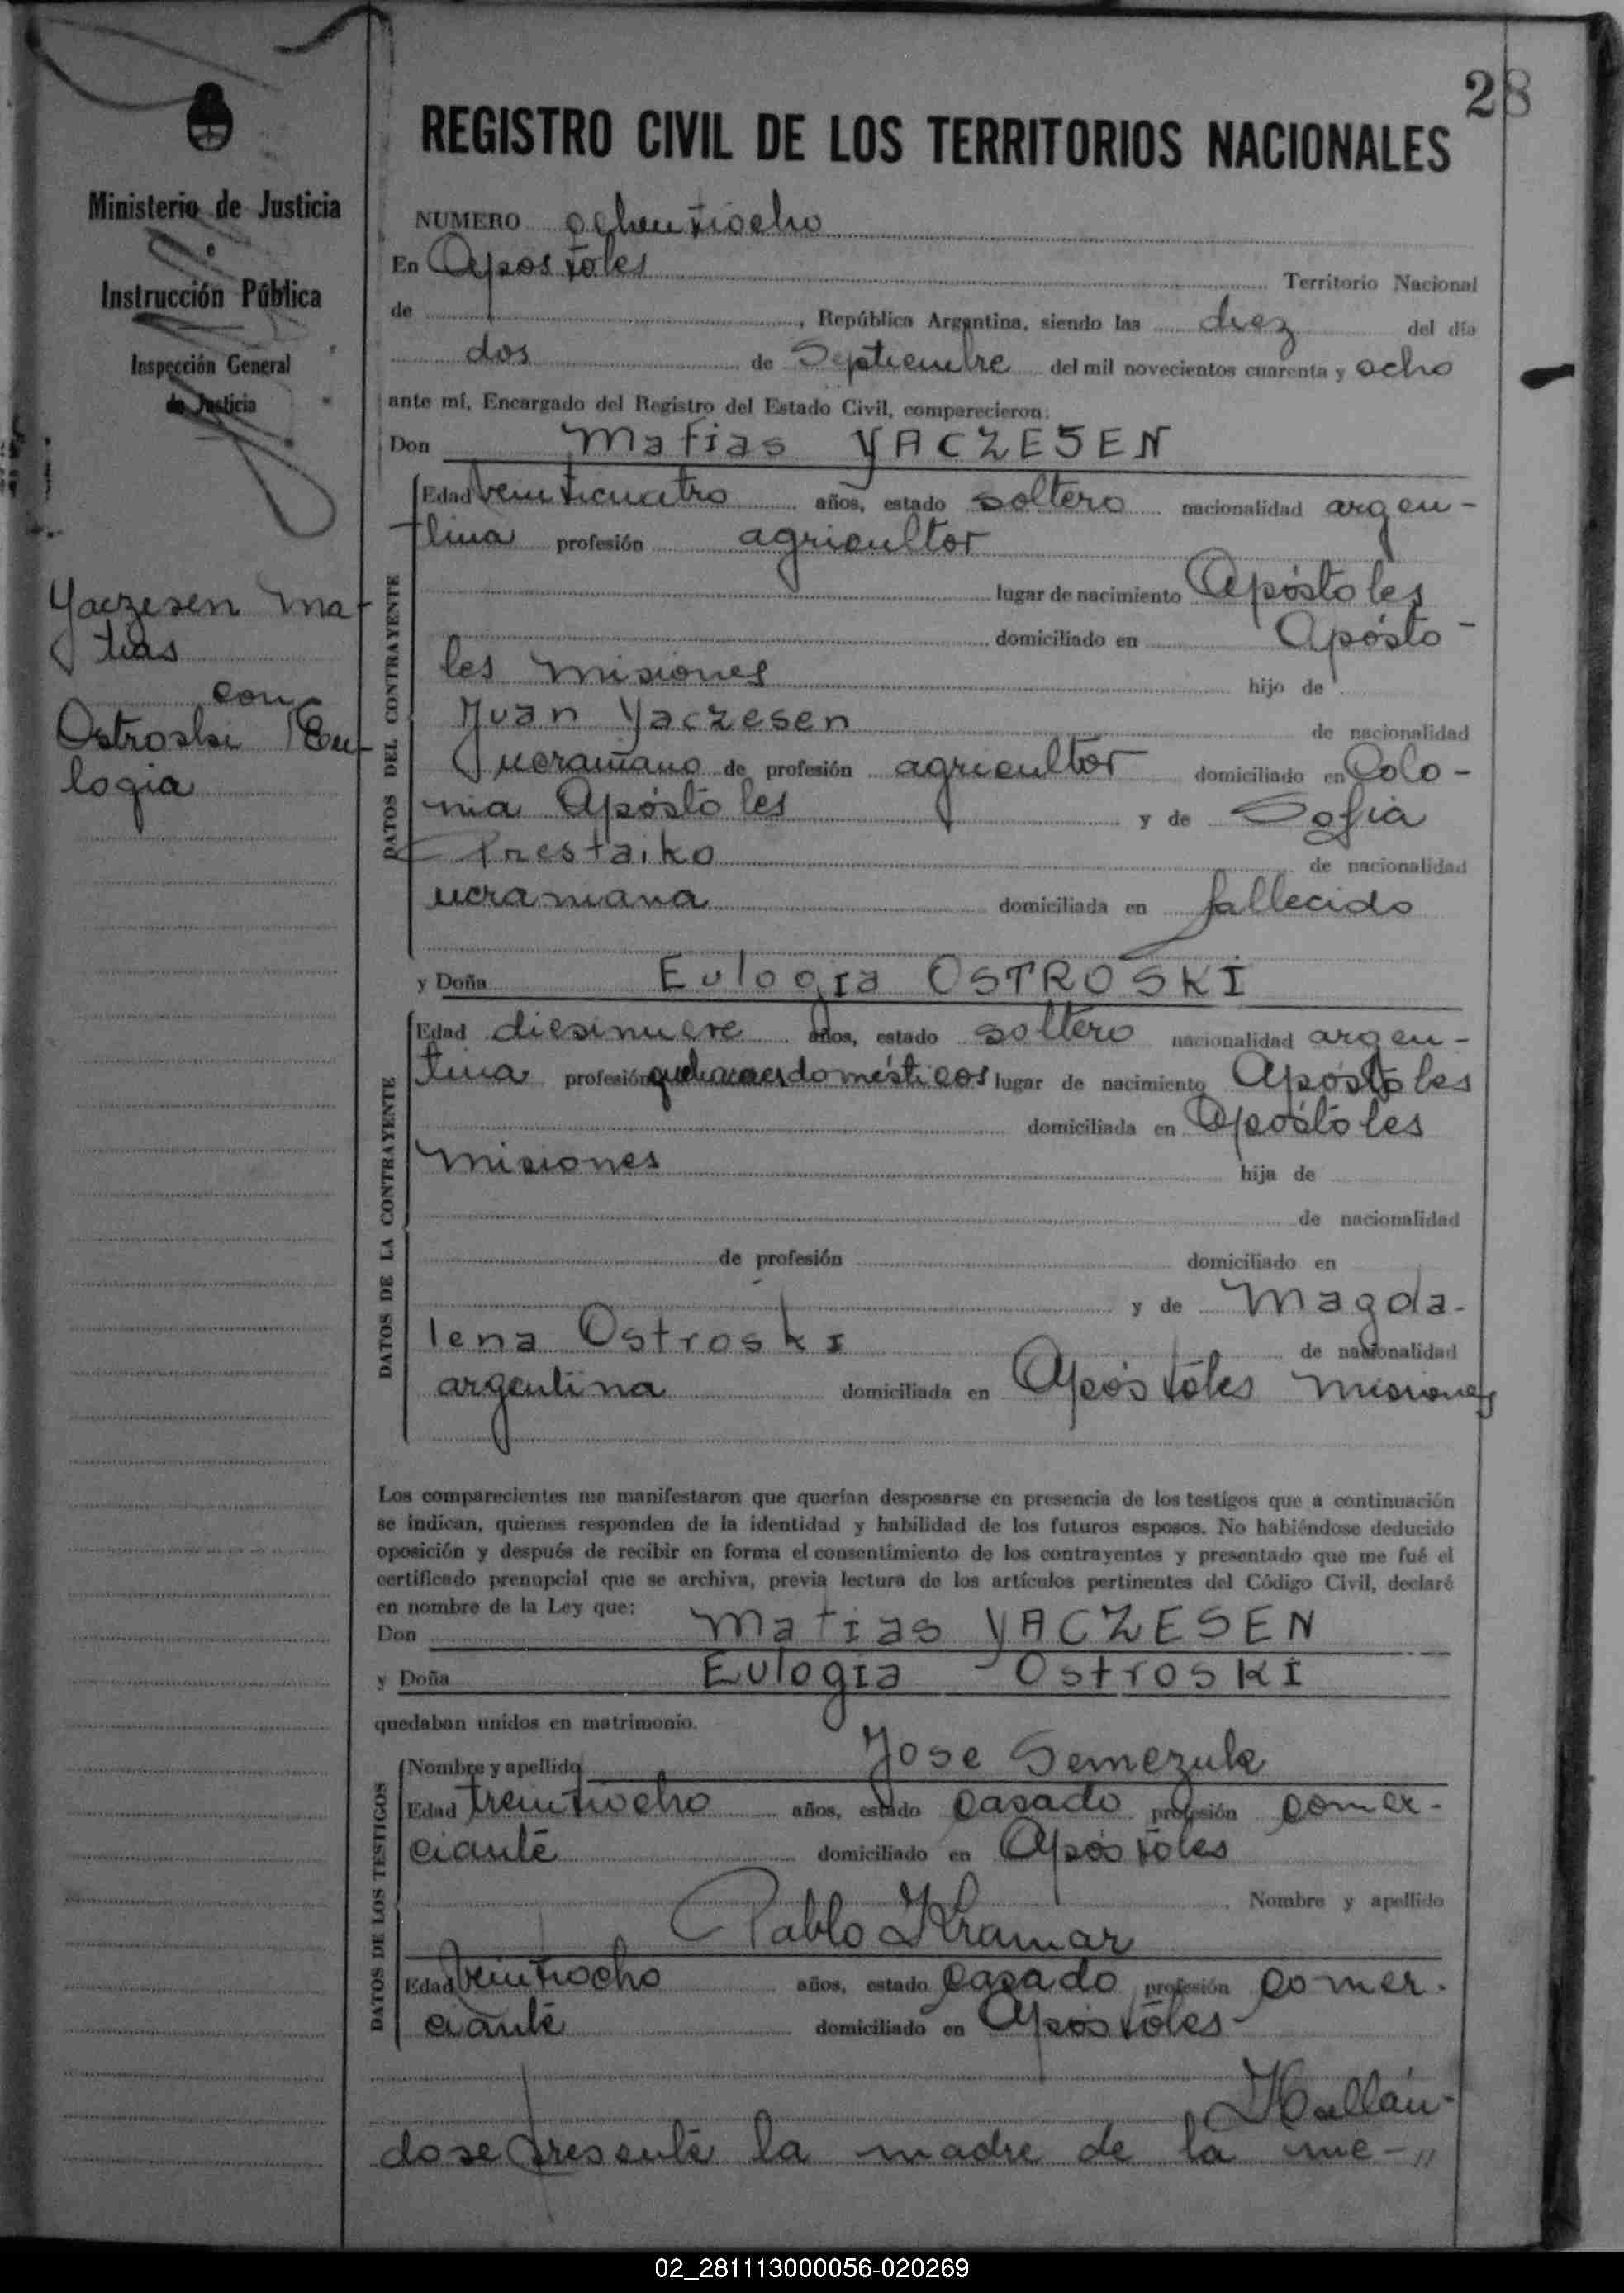 28
REGISTRO CIVIL DE LOS TERRITORIOS NACIONALES
Ministerio de Justicia
e
Instrucción Pública
Inspección General
de Justicia
Yaczesen Ma-
tias
con
Ostroski Eu-
logia
NUMERO ochentiocho
En Apostoles Territorio Nacional
de , República Argentina, siendo las diez del día
dos de Septiembre del mil novecientos cuarenta y ocho
ante mí, Encargado del Registro del Estado Civil, comparecieron:
Don Matias YACZESEN
DATOS DEL CONTRAYENTE
Edad veinticuatro años, estado soltero nacionalidad argen-
tina profesión agricultor
lugar de nacimiento Apóstoles
domiciliado en Aposto-
les Misiones hijo de
Juan Yaczesen de nacionalidad
ucraniano de profesión agricultor domiciliado en Colo-
nia Apóstoles y de Sofia
Prestaiko de nacionalidad
ucraniana domiciliada en fallecido
y Doña Eulogia OSTROSKI
DATOS DE LA CONTRAYENTE
Edad diesinueve años, estado soltero nacionalidad argen-
tina profesión quehaceres domésticos lugar de nacimiento Apóstoles
domiciliada en Apóstoles
Misiones hija de
de nacionalidad
de profesión domiciliado en
y de Magda-
lena Ostroski de nacionalidad
argentina domiciliada en Apóstoles Misiones
Los comparecientes me manifestaron que querían desposarse en presencia de los testigos que a continuación
se indican, quienes responden de la identidad y habilidad de los futuros esposos. No habiéndose deducido
oposición y después de recibir en forma el consentimiento de los contrayentes y presentado que me fué el
certificado prenupcial que se archiva, previa lectura de los artículos pertinentes del Código Civil, declaré
en nombre de la Ley que:
Don Matias YACZESEN
y Doña Eulogia - Ostroski
quedaban unidos en matrimonio.
DATOS DE LOS TESTIGOS
Nombre y apellido Jose Semezuk
Edad treintiocho años, estado casado profesión comer-
ciante domiciliado en Apóstoles
Nombre y apellido
Pablo Kramar
Edad veintiocho años, estado casado profesión comer-
ciante domiciliado en Apóstoles-
Hallán-
dose presente la madre de la me-"
02_281113000056-020269